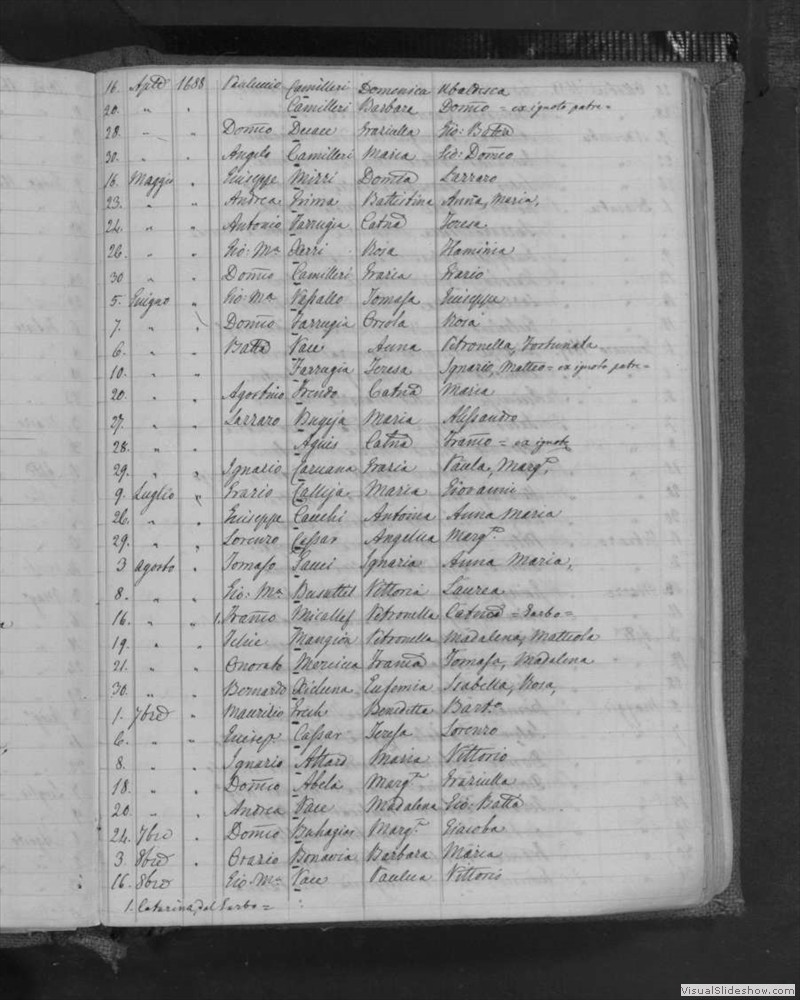 16. Aple 1688 Paulucio Camilleri Domenica Ubaldesca
20. " " Camilleri Barbara Domco = ex ignoto patre =
28. " " Domco Grazialla Gio: Batta
30. " " Angelo Camilleri Maria Gio: Domco
16. Maggio " Giuseppe Mizzi Domca Lazzaro
23. " " Andrea Grima Battistina Anna, Maria,
24. " " Antonio Farrugia Catna Teresa
26. " " Gio: Ma Xerri Rosa Flaminia
30 " " Domco Camilleri Grazia Grazio
5. Giugno " Gio: Ma Vassallo Tomasa Giuseppe
7. " " Domco Farrugia Orsola Rosa
6. " " Batta Pace Anna Petronella, Fortunata
10. " " Farrugia Teresa Ignazio, Matteo = ex ignoto patre =
20. " " Agostino Frendo Catna Maria
27. " " Lazzaro Bugeja Maria Alessandro
28. " " Agius Catna Franco = ex ignoto
29. " " Ignazio Caruana Grazia Paula, Margta,
9. Luglio " Grazio Calleja Maria Giovanni
26. " " Giuseppe Cauchi Antonia Anna Maria
29. " " Lorenzo Cassar Angelica Margta
3 agosto " Tomaso Gauci Ignazia Anna Maria,
8. " " Gio: Ma Busuttil Vittoria Laurea
16. " " 1. Franco Micallef Petronella Caterina = Garbo =
19. " " Felice Mangion Petronella Madalena, Matteola
21. " " Onorato Mercieca Franca Tomasa, Madalena
30. " " Bernardo Xicluna Eufemia Isabella, Rosa,
1. 7bre " Maurizio Grech Benedetta Barba
6. " " Giusep. Cassar Teresa Lorenzo
8. " " Ignazio Attard Maria Vittorio
18. " " Domco Abela Margta Graziulla
20. " " Andrea Pace Madalena Gio: Batta
24. 7bre " Domco Buhagiar Margta Giacoba
3. 8bre " Orazio Bonavia Barbara Maria
16. 8bre Gio: Ma Pace Paulica Vittorio
1. Catarina, del Garbo =
VisualSlideshow.com